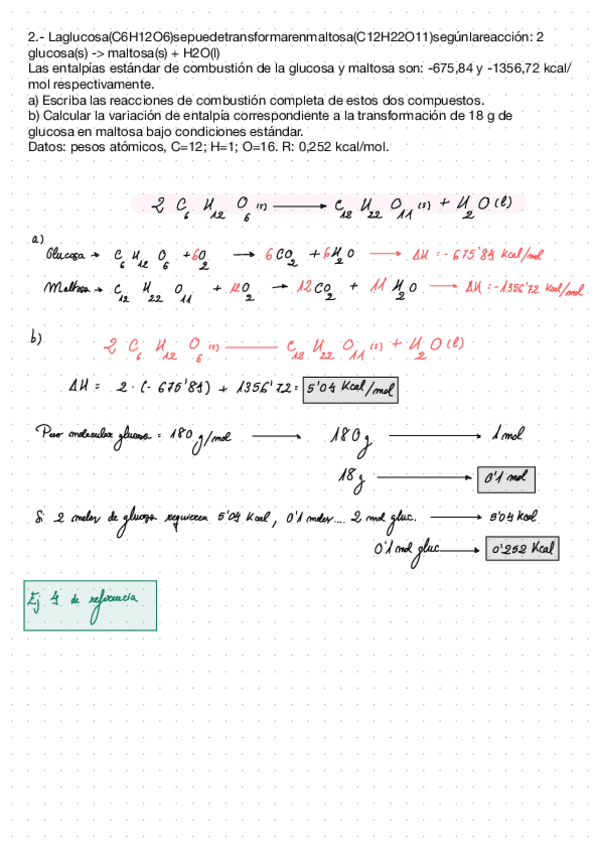 2.- Laglucosa(C6H12O6)sepuedetransformarenmaltosa(C12H22O11)segúnlareacción: 2
glucosa(s) -> maltosa(s) + H2O(l)
Las entalpías estándar de combustión de la glucosa y maltosa son: -675,84 y -1356,72 kcal/
mol respectivamente.
a) Escriba las reacciones de combustión completa de estos dos compuestos.
b) Calcular la variación de entalpía correspondiente a la transformación de 18 g de
glucosa en maltosa bajo condiciones estándar.
Datos: pesos atómicos, C=12; H=1; O=16. R: 0,252 kcal/mol.
2 C6 H12 O6 (s) → C12 H22 O11 (s) + H2O (l)
a)
Glucosa → C6 H12 O6 + 6O2 → 6CO2 + 6H2O → ΔH = - 675'84 Kcal/mol
Maltosa → C12 H22 O11 + 12O2 → 12CO2 + 11 H2O → ΔH = -1356'72 Kcal/mol
b)
2 C6 H12 O6 (s) — C12 H22 O11 (s) + H2O (l)
ΔH = 2 · (- 675'84) + 1356'72 = 5'04 Kcal/mol
Peso molecular glucosa = 180 g/mol → 180g → 1 mol
18g → 0'1 mol
Si 2 moles de glucosa requieren 5'04 Kcal, 0'1 moles.... 2 mol gluc. → 5'04 Kcal
0'1 mol gluc → 0'252 Kcal
Ej 4 de referencia